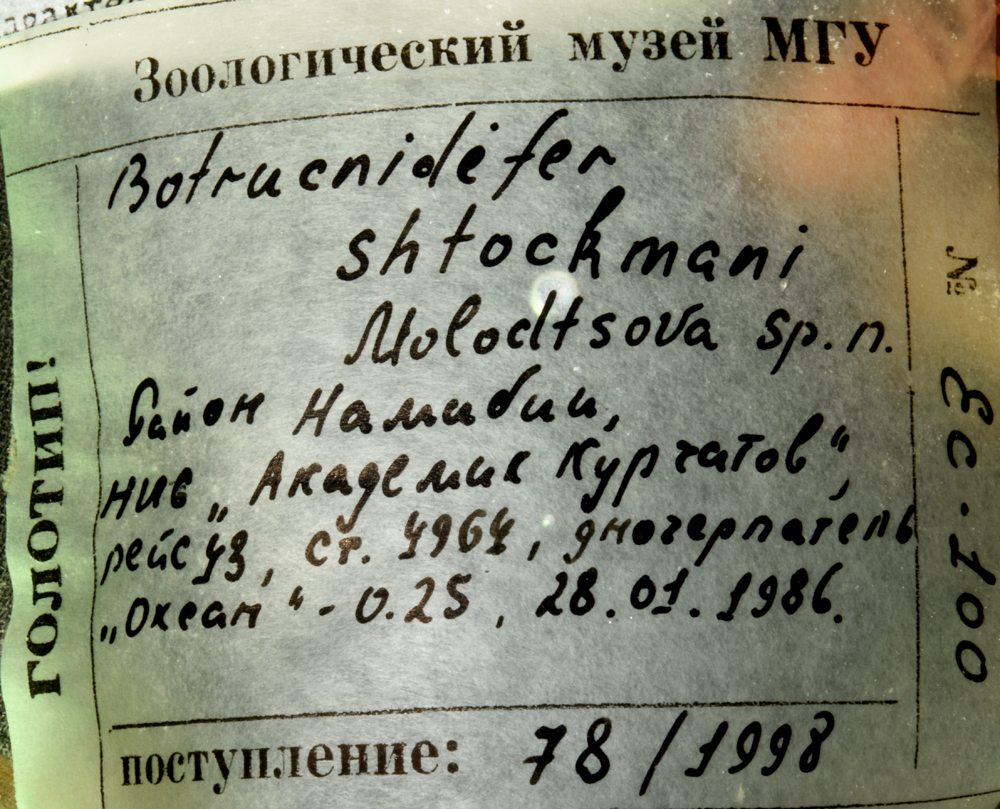 Зоологический музей МГУ
Botrucnidifer
shtockmani
Molodtsova sp. n.
Район Намибии,
НИС „Академик Курчатов“,
рейс 43, ст. 4964, дночерпатель
„Океан“ - 0.25, 28.01.1986.
поступление: 78/1998
ГОЛОТИП!
№ Ec-100